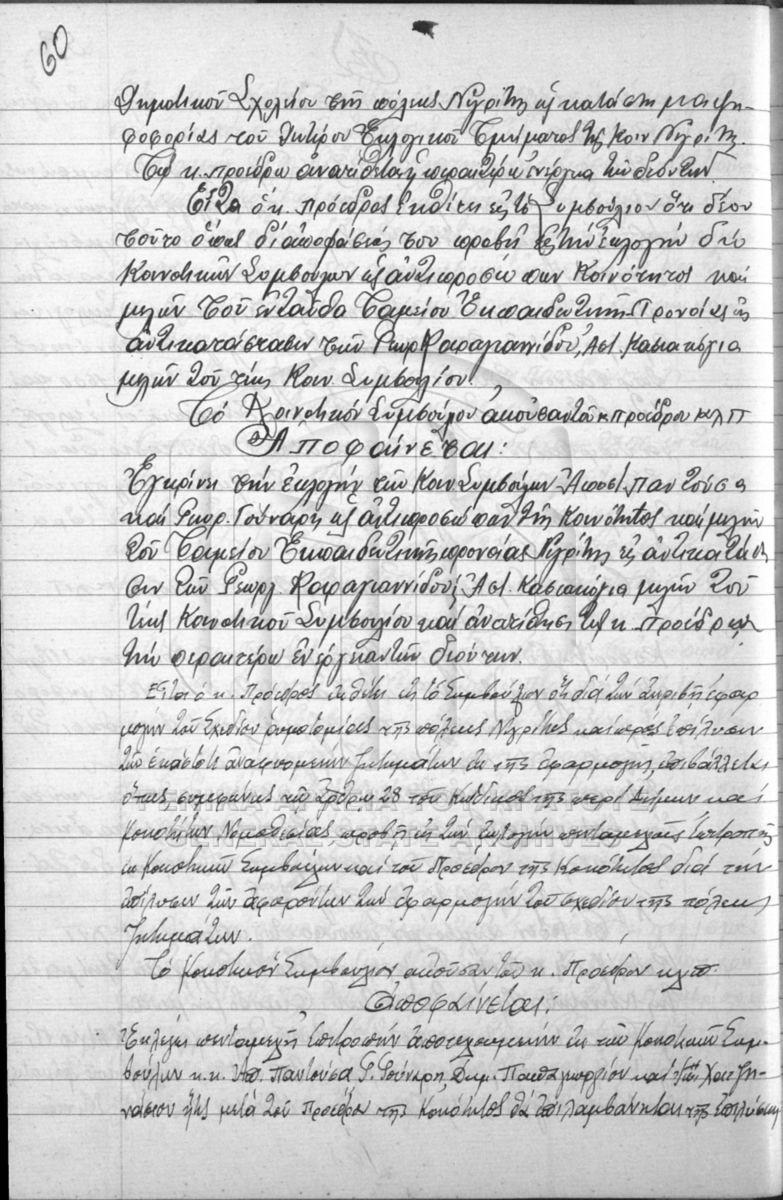 60
Δημοτικοῦ Σχολείου τῆς πόλεως Νιγρίτης ἐξ κατάστημα ψη-
φοφορίας τοῦ Δευτέρου Ἐκλογικοῦ Τμήματος τῆς Κοιν Νιγρίτης.
Τῷ κ. προέδρῳ ἀνατίθεται ἡ περαιτέρω ἐνέργεια τῶν δεόντων
Εἶτα ὁ κ. πρόεδρος ἐκθέτει εἰς τὸ Συμβούλιον ὅτι δέον
τοῦτο ὅπως δι' ἀποφάσεώς του προβῇ εἰς τὴν ἐκλογὴν δύο
Κοινοτικῶν Συμβούλων ὡς ἀντιπροσώπων Κοινότητος καὶ
μελῶν τοῦ ἐνταῦθα Ταμείου Ἐκπαιδευτικῆς Προνοίας εἰς
ἀντικατάστασιν τῶν Γεωρ Καραγιαννίδου, Ἀστ. Κασιακόγια
μελῶν τοῦ τέως Κοιν. Συμβουλίου.
Τὸ Κοινοτικὸν Συμβούλιον ἀκοῦσαν τοῦ κ προέδρου κλπ
Ἀποφαίνεται:
Ἐγκρίνει τὴν ἐκλογὴν τῶν Κοιν Συμβούλων Ἀποστ. Παντούσα
καὶ Γεωρ. Γούναρη ὡς ἀντιπροσώπων τῆς Κοινότητος καὶ μελῶν
τοῦ Ταμείου Ἐκπαιδευτικῆς προνοίας Νιγρίτης εἰς ἀντικατάστα
σιν τῶν Γεωργ. Καραγιαννίδου, Ἀστ. Κασιακόγια μελῶν τοῦ
τέως Κοινοτικοῦ Συμβουλίου καὶ ἀνατίθησι τῷ κ. Προέδρῳ
τὴν περαιτέρω ἐνέργειαν τῶν δεόντων.
Εἶτα ὁ κ. Πρόεδρος ἐκθέτει εἰς τὸ Συμβούλιον ὅτι διὰ τὴν ἀκριβῆ ἐφαρ
μογὴν τοῦ Σχεδίου ρυμοτομίας τῆς πόλεως Νιγρίτης καὶ πρὸς ἐπίλυσιν
τῶν ἑκάστοτε ἀναφυομένων ζητημάτων ἐκ τῆς ἐφαρμογῆς, ἐπιβάλλεται
ὅπως συμφώνως τῷ ἄρθρῳ 28 τοῦ Κώδικος τῆς περὶ Δήμων καὶ
Κοινοτήτων Νομοθεσίας προβῇ εἰς τὴν ἐκλογὴν πενταμελοῦς ἐπιτροπῆς
ἐκ Κοινοτικῶν Συμβούλων καὶ τοῦ Προέδρου τῆς Κοινότητος διὰ τὴν
ἐπίλυσιν τῶν ἀφορώντων τὴν ἐφαρμογὴν τοῦ σχεδίου τῆς πόλεως
ζητημάτων.
Τὸ Κοινοτικὸν Συμβούλιον ἀκοῦσαν τοῦ κ. Προέδρου κλπ.
Ἀποφαίνεται:
Ἐκλέγει πενταμελῆ ἐπιτροπὴν ἀποτελουμένην ἐκ τῶν Κοινοτικῶν Συμ-
βούλων κ.κ. Ἀπ. Παντούσα Γ. Γούναρη, Δημ. Παπαγεωργίου καὶ Χατζη-
νάσιου ἥτις μετὰ τοῦ Προέδρου τῆς Κοινότητος θὰ ἐπιλαμβάνηται τῆς ἐπιλύσεως
ΓΕΝΙΚΑ ΑΡΧΕΙΑ ΤΟΥ ΚΡΑΤΟΥΣ
GENERAL STATE ARCHIVES